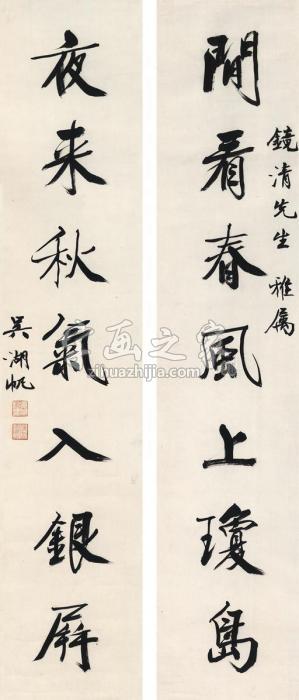 鏡清先生 雅属
閒看春風上瓊島
夜来秋氣入銀屏
吳湖帆
書画之家
zihuazhijia.com